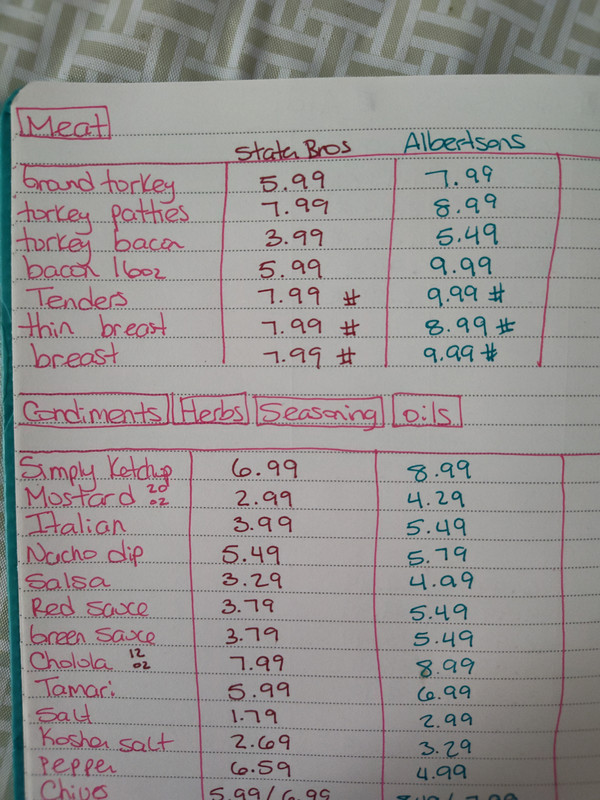 Meat
Stater Bros Albertsons
Grand torkey 5.99 7.99
torkey patties 7.99 8.99
torkey bacon 3.99 5.49
bacon 16oz 5.99 9.99
Tenders 7.99 # 9.99 #
thin breast 7.99 # 8.99 #
breast 7.99 # 9.99 #
Condiments Herbs Seasoning oils
Simply Ketchup 6.99 8.99
Mostard 20 oz 2.99 4.29
Italian 3.99 5.49
Nacho dip 5.49 5.79
Salsa 3.29 4.99
Red sauce 3.79 5.49
Green sauce 3.79 5.49
Cholola 12 oz 7.99 8.99
Tamari 5.99 6.99
Salt 1.79 2.99
Kosher salt 2.69 3.29
Pepper 6.59 4.99
Chives 5.99/6.99